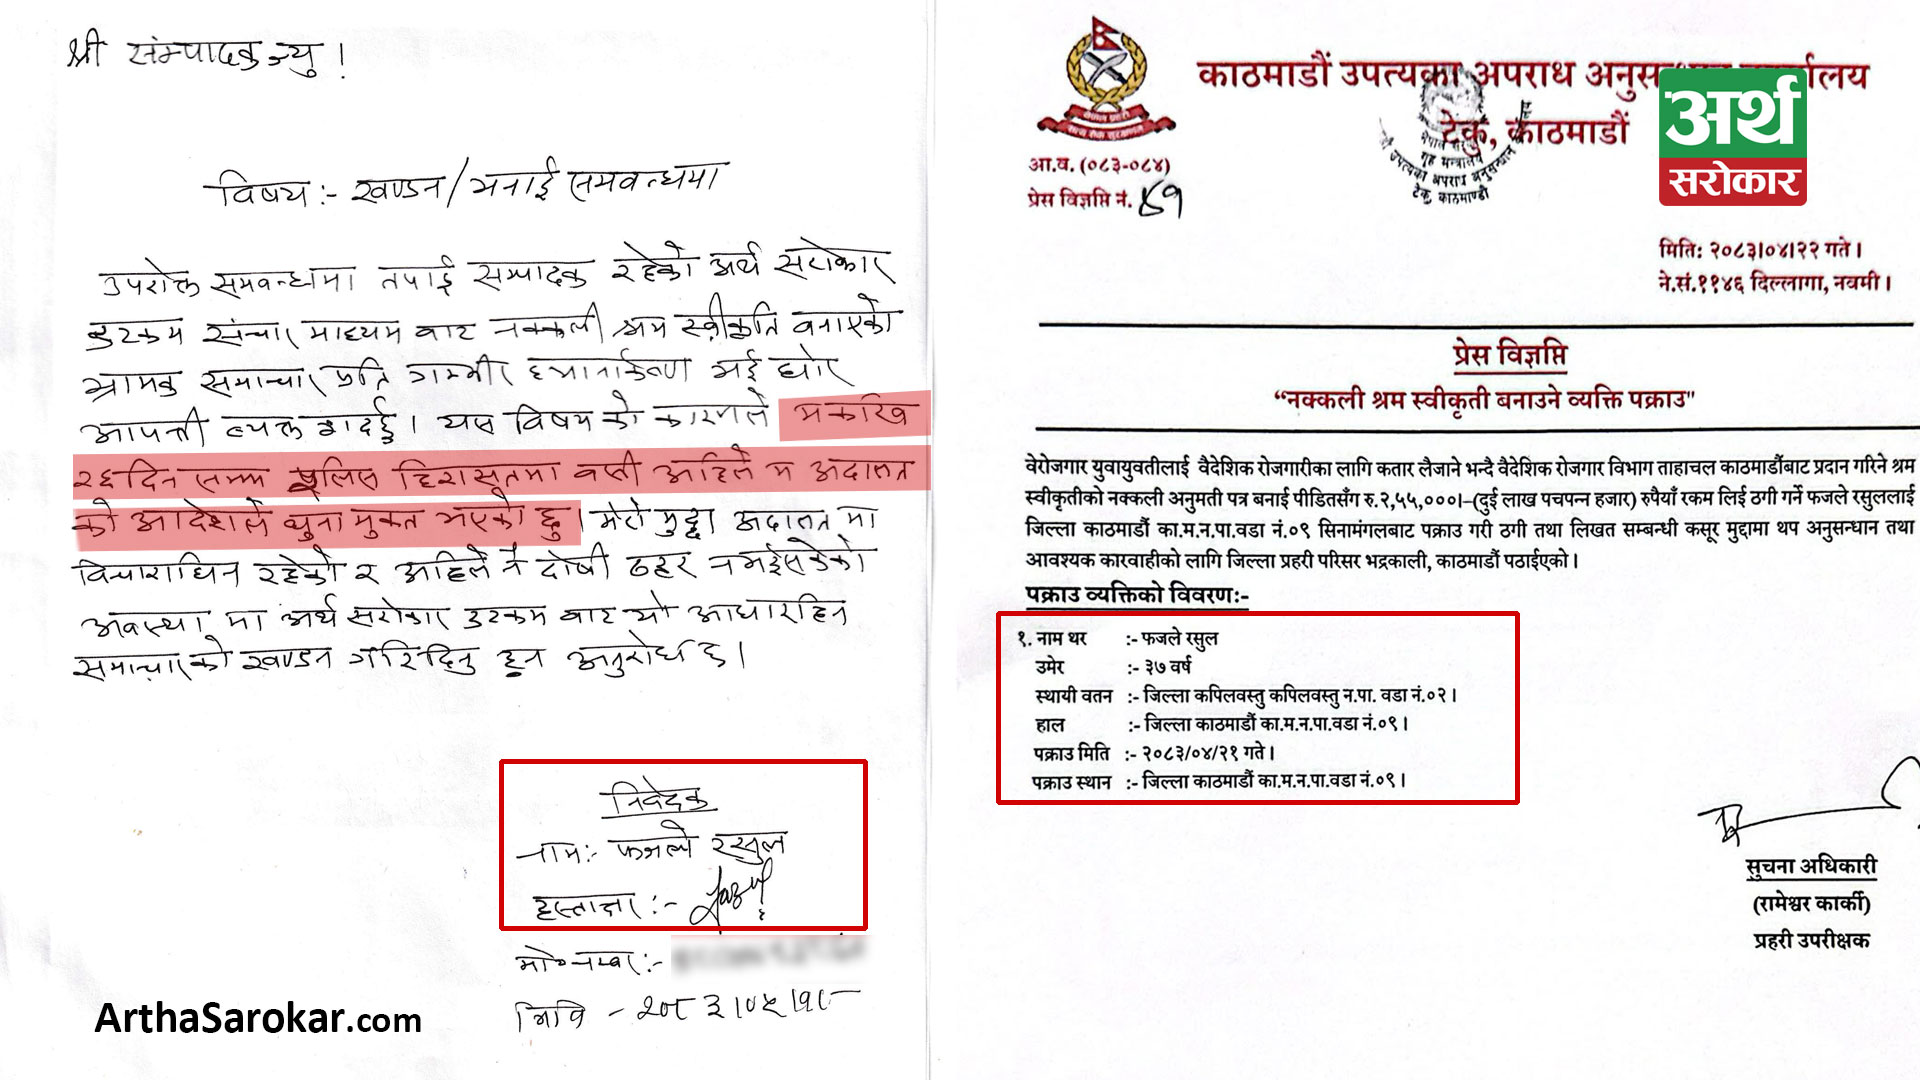 श्री संम्पादक ज्यु !
विषय :- खण्डन/मनाई समवन्धमा
उपरोक्त समवन्धमा तपाई सम्पादक रहेको अर्थ सरोकार
डटकम संचार माध्यम बाट नक्कली श्रम स्वीकृति बनाएको
भ्रामक समाचार प्रति गम्भीर ध्यानाकर्षण भई घोर
आपत्ती व्यक्त गर्दछु। यस विषय को कारणले म करिब
२६ दिन सम्म पुलिस हिरासतमा बसी अहिले म अदालत
को आदेशले थुना मुक्त भएको छु। मेरो मुद्दा अदालत मा
विचाराधिन रहेको र अहिले नै दोषी ठहर नभईसकेको
अवस्था मा अर्थ सरोकार डटकम बाट यो आधारहिन
समाचारको खण्डन गरिदिनु हुन अनुरोध छ।
निवेदक
नाम:- फजले रसुल
हस्ताक्षर :-
मो. नम्बर :-
मिति -
ArthaSarokar.com
काठमाडौं उपत्यका अपराध कार्यालय
टेकु, काठमाडौं
अर्थ
सरोकार
आ.व. (०८३-०८४)
प्रेस विज्ञप्ति नं.
मिति: २०८३।०४।२२ गते।
ने.सं.११४६ दिल्लागा, नवमी।
प्रेस विज्ञप्ति
“नक्कली श्रम स्वीकृती बनाउने व्यक्ति पक्राउ"
वेरोजगार युवायुवतीलाई वैदेशिक रोजगारीका लागि कतार लैजाने भन्दै वैदेशिक रोजगार विभाग ताहाचल काठमाडौंबाट प्रदान गरिने श्रम
स्वीकृतीको नक्कली अनुमती पत्र बनाई पीडितसँग रु.२,५५,०००।–(दुई लाख पचपन्न हजार) रुपैयाँ रकम लिई ठगी गर्ने फजले रसुललाई
जिल्ला काठमाडौं का.म.न.पा.वडा नं.०९ सिनामंगलबाट पक्राउ गरी ठगी तथा लिखत सम्बन्धी कसूर मुद्दामा थप अनुसन्धान तथा
आवश्यक कारवाहीको लागि जिल्ला प्रहरी परिसर भद्रकाली, काठमाडौं पठाईएको।
पक्राउ व्यक्तिको विवरण:-
१. नाम थर :- फजले रसुल
उमेर :- ३७ वर्ष
स्थायी वतन :- जिल्ला कपिलवस्तु कपिलवस्तु न.पा. वडा नं.०२।
हाल :- जिल्ला काठमाडौं का.म.न.पा.वडा नं.०९।
पक्राउ मिति :- २०८३/०४/२१ गते।
पक्राउ स्थान :- जिल्ला काठमाडौं का.म.न.पा.वडा नं.०९।
सुचना अधिकारी
(रामेश्वर कार्की)
प्रहरी उपरीक्षक